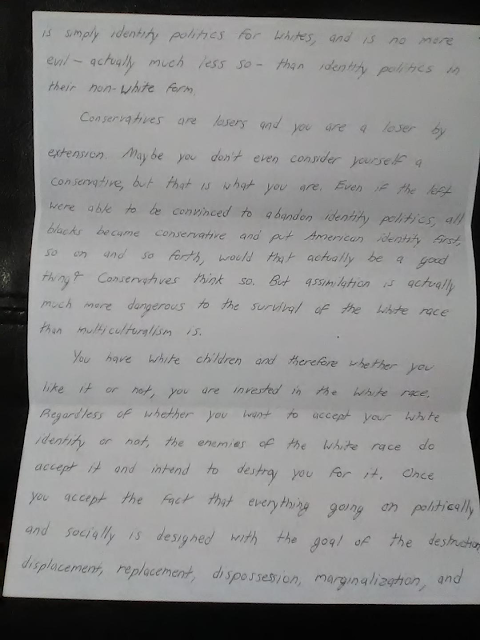 is simply identity politics for whites, and is no more
evil - actually much less so - than identity politics in
their non-white form.
Conservatives are losers and you are a loser by
extension. Maybe you don't even consider yourself a
conservative, but that is what you are. Even if the left
were able to be convinced to abandon identity politics, all
blacks became conservative and put American identity first,
so on and so forth, would that actually be a good
thing? Conservatives think so. But assimilation is actually
much more dangerous to the survival of the White race
than multiculturalism is.
You have White children and therefore whether you
like it or not, you are invested in the White race.
Regardless of whether you want to accept your White
identity or not, the enemies of the White race do
accept it and intend to destroy you for it. Once
you accept the fact that everything going on politically
and socially is designed with the goal of the destruction,
displacement, replacement, dispossession, marginalization, and